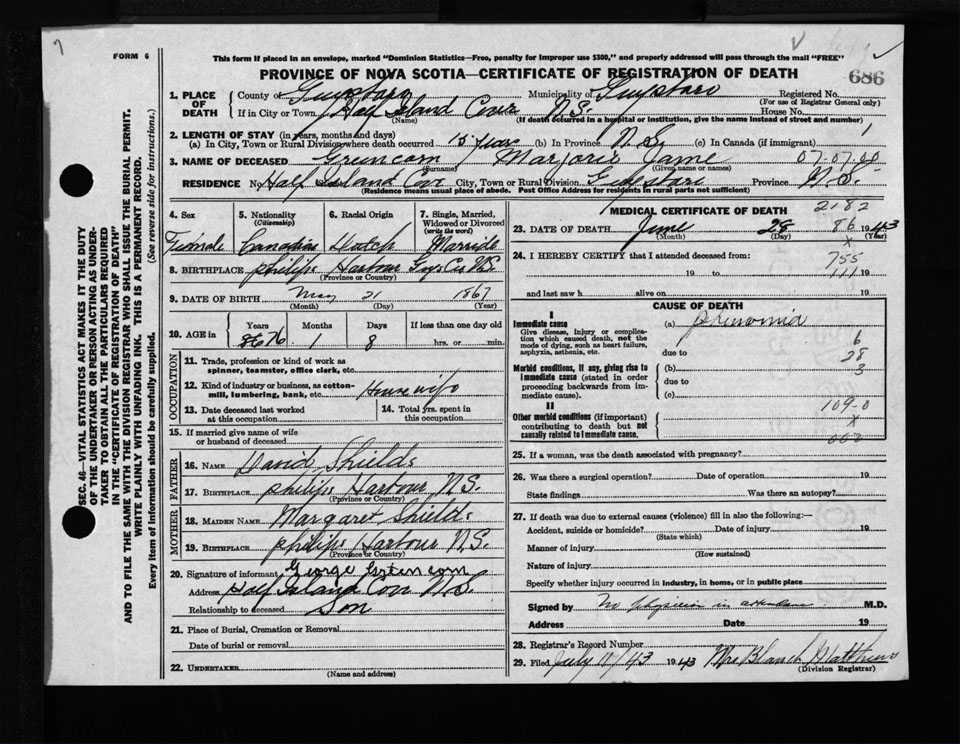 7
FORM 6
This form if placed in an envelope, marked "Dominion Statistics—Free, penalty for improper use $300," and properly addressed will pass through the mail "FREE"
PROVINCE OF NOVA SCOTIA—CERTIFICATE OF REGISTRATION OF DEATH
686
1. PLACE OF DEATH
County of Guysboro Municipality of Guysboro Registered No.
(For use of Registrar General only)
If in City or Town Half Island Cove N.S. House No.
(Name) (If death occurred in a hospital or institution, give the name instead of street and number)
2. LENGTH OF STAY (in years, months and days)
(a) In City, Town or Rural Division where death occurred 15 years (b) in Province N.S. (c) in Canada (if immigrant)
3. NAME OF DECEASED Greencorn Marjorie Jame 07-07-00
(Surname) (Given name or names)
RESIDENCE No Half Island Cov City, Town or Rural Division Guysboro Province N.S.
(Residence means usual place of abode. Post Office Address for residents in rural parts not sufficient)
4. Sex
Female
5. Nationality (Citizenship)
Canadian
6. Racial Origin
Dutch
7. Single, Married, Widowed or Divorced (write the word)
Married
8. BIRTHPLACE philips Harbour Guys Co N.S.
(Province or Country)
9. DATE OF BIRTH May 21 1867
(Month) (Day) (Year)
10. AGE in
Years Months Days If less than one day old
76 1 8 hrs. or min.
OCCUPATION
11. Trade, profession or kind of work as spinner, teamster, office clerk, etc.
12. Kind of industry or business, as cotton-mill, lumbering, bank, etc. House wife
13. Date deceased last worked at this occupation
14. Total yrs. spent in this occupation
15. If married give name of wife or husband of deceased
FATHER
16. NAME David Shields
17. BIRTHPLACE philips Harbour N.S.
(Province or Country)
MOTHER
18. MAIDEN NAME Margaret Shields
19. BIRTHPLACE philips Harbour N.S.
(Province or Country)
20. Signature of informant George Greencorn
Address Half Island Cov N.S.
Relationship to deceased Son
21. Place of Burial, Cremation or Removal
Date of burial or removal
22. UNDERTAKER
(Name and address)
MEDICAL CERTIFICATE OF DEATH
2182
23. DATE OF DEATH June 28 86 1943
(Month) (Day) x (Year)
24. I HEREBY CERTIFY that I attended deceased from:
755
19 to 111 19
and last saw h alive on 19
CAUSE OF DEATH
I
Immediate cause
Give disease, injury or complication which caused death, not the mode of dying, such as heart failure, asphyxia, asthenia, etc.
(a) pheumonia
6
due to
28
Morbid conditions, if any, giving rise to immediate cause (stated in order proceeding backwards from immediate cause).
(b) 3
due to
(c)
II
109-0
Other morbid conditions (if important) contributing to death but not causally related to immediate cause.
x
000
25. If a woman, was the death associated with pregnancy?
26. Was there a surgical operation? Date of operation 19
State findings Was there an autopsy?
27. If death was due to external causes (violence) fill in also the following:—
Accident, suicide or homicide? Date of injury 19
(State which)
Manner of injury
(How sustained)
Nature of injury
Specify whether injury occurred in industry, in home, or in public place
Signed by No Physician in attendance M.D.
Address Date 19
28. Registrar's Record Number
29. Filed July 11/43 1943 Mrs Blanch Matthews
(Division Registrar)
SEC. 46—VITAL STATISTICS ACT MAKES IT THE DUTY OF THE UNDERTAKER OR PERSON ACTING AS UNDERTAKER TO OBTAIN ALL THE PARTICULARS REQUIRED IN THE "CERTIFICATE OF REGISTRATION OF DEATH" AND TO FILE THE SAME WITH THE DIVISION REGISTRAR WHO SHALL ISSUE THE BURIAL PERMIT.
WRITE PLAINLY WITH UNFADING INK. THIS IS A PERMANENT RECORD.
Every item of information should be carefully supplied. (See reverse side for instructions.)